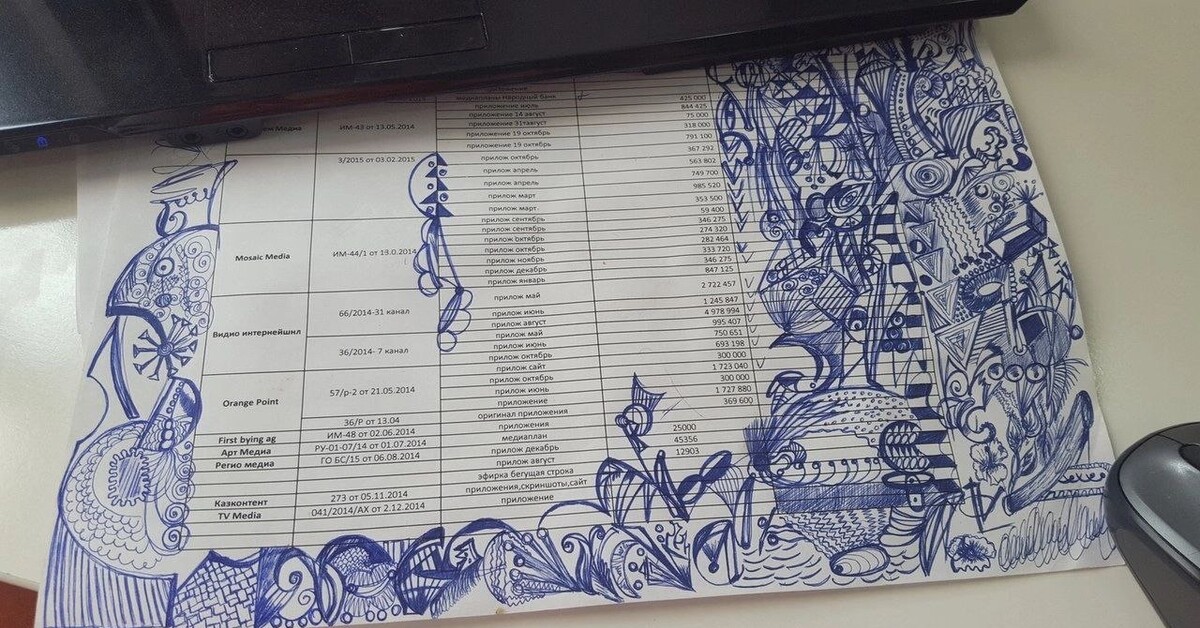 медиапланы Народный банк 425 000
приложение июль 844 425
приложение 14 август 75 000
ИМ-43 от 13.05.2014 приложение 31август 318 000
приложение 19 октябрь 791 100
приложение 19 октябрь 367 292
3/2015 от 03.02.2015 прилож октябрь 563 802
прилож апрель 749 700
прилож апрель 985 520
прилож март 353 500
прилож март 59 400
прилож сентябрь 346 275
прилож сентябрь 274 320
прилож октябрь 282 464
Mosaic Media ИМ-44/1 от 13.0.2014 прилож октябрь 333 720
прилож ноябрь 346 275
прилож декабрь 847 125
прилож январь
прилож май 2 722 457
66/2014-31 канал прилож июнь 1 245 847
прилож август 4 978 994
Видио интернейшнл прилож май 995 407
36/2014- 7 канал прилож июнь 750 651
прилож октябрь 693 198
прилож сайт 300 000
прилож октябрь 1 723 040
Orange Point 57/р-2 от 21.05.2014 прилож июнь 300 000
приложение 1 727 880
36/Р от 13.04 оригинал приложения 369 600
First bying ag ИМ-48 от 02.06.2014 приложения
Арт Медиа РУ-01-07/14 от 01.07.2014 медиаплан 25000
Регио медиа ГО БС/15 от 06.08.2014 прилож декабрь 45356
прилож август 12903
эфирка бегущая строка
Казконтент 273 от 05.11.2014 приложения,скриншоты,сайт
TV Media 041/2014/АХ от 2.12.2014 приложение